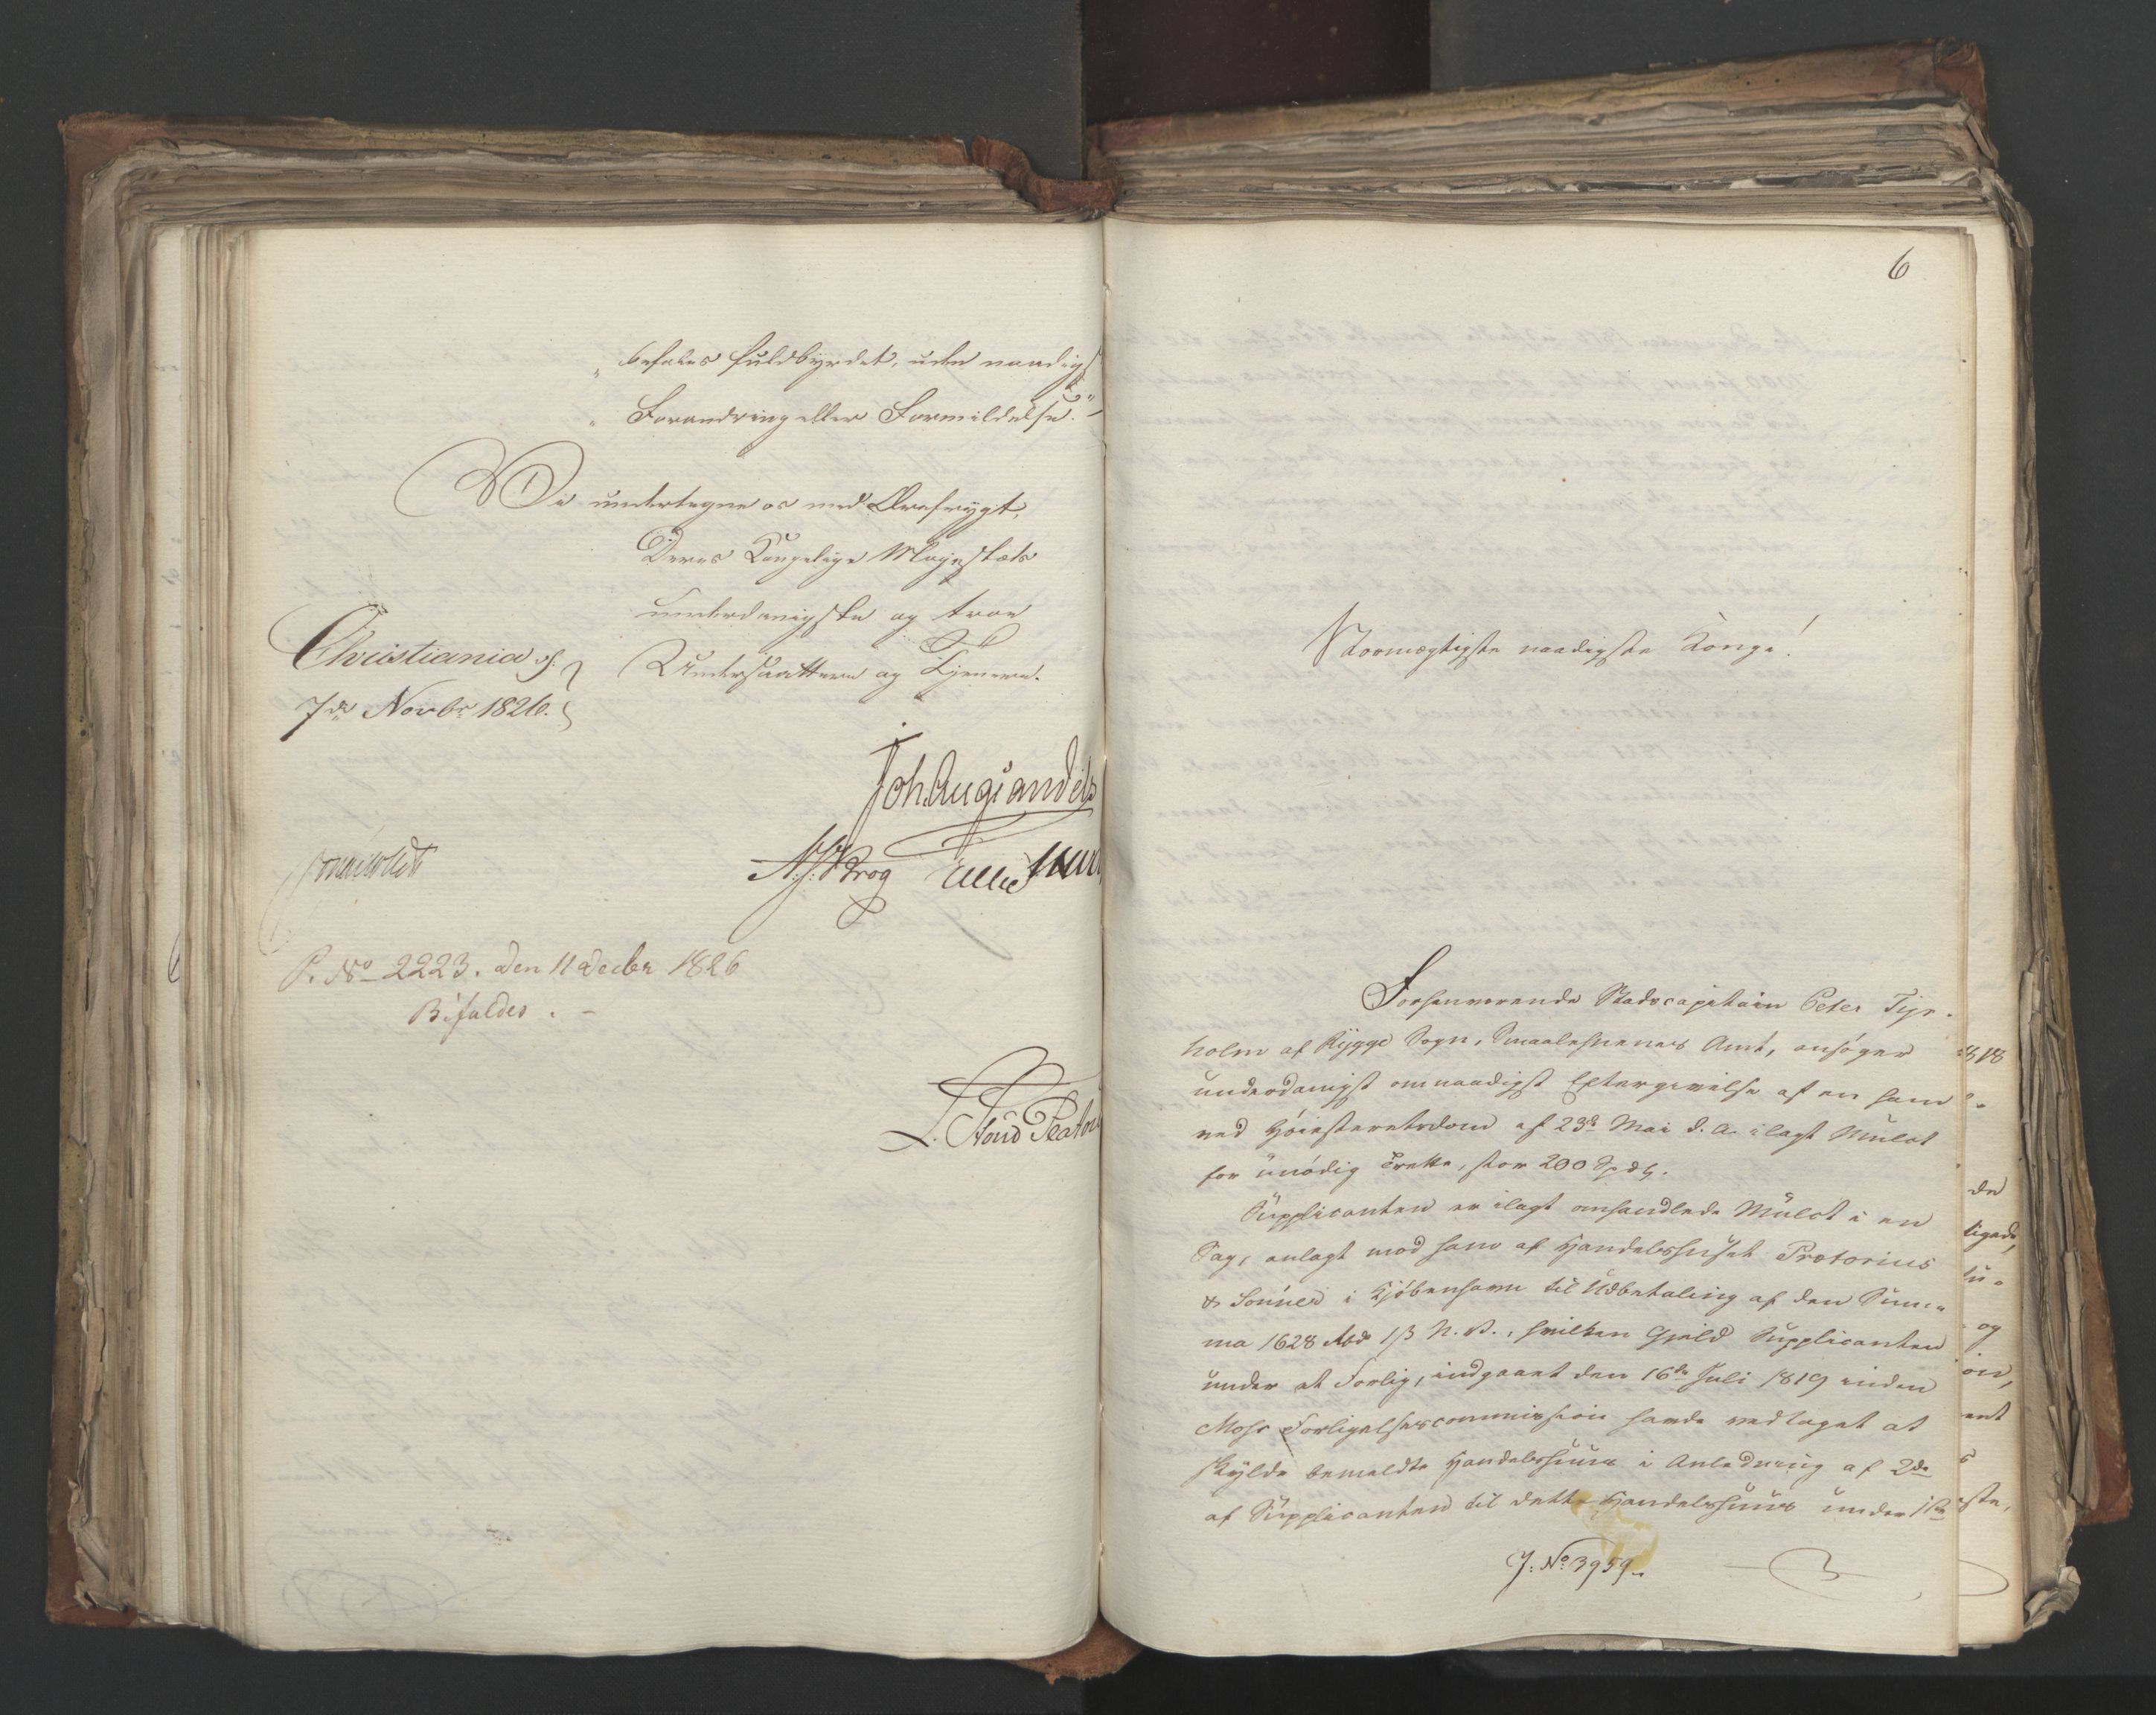 „ befales fuldbyrdet, uden naadigst
„ Forandring eller Formildelse."
Vi undertegne os med Ærefrygt,
Deres Kongelige Majestæts
underdanigste og troe
Undersaattere og Tjenere.
Christiania d.
7de Novbr 1826.
Joh. Aug. Sandels
N. J. Krog
P. No 2223. den 11 Decbr 1826
Bifaldes. -
6
Stormægtigste naadigste Konge!
Forhenværende Stadscapitain Peter Tyr-
holm af Rygge Sogn, Smaalehnenes Amt, ansøger
underdanigst om naadigst Eftergivelse af en ham
ved Høiesteretsdom af 23d Mai d. A. ilagt Mulct
for unødig Trette, stor 200 Spd.
Supplicanten er ilagt omhandlede Mulct i en
Sag, anlagt mod ham af Handelshuset Prætorius
& Sønner i Kjøbenhavn til Udbetaling af den Sum-
ma 1628 Rbd 1 ß N. V., hvilken Gjeld Supplicanten
under et Forlig, indgaaet den 16de Juli 1819 inden
Moss Forligelsescommission havde vedtaget at
skylde bemeldte Handelshuus i Anledning af 2de
af Supplicanten til dette Handelshuus under 1ste
J: No 3959.
1818
de
ligede,
og
ion,
ent
ste,